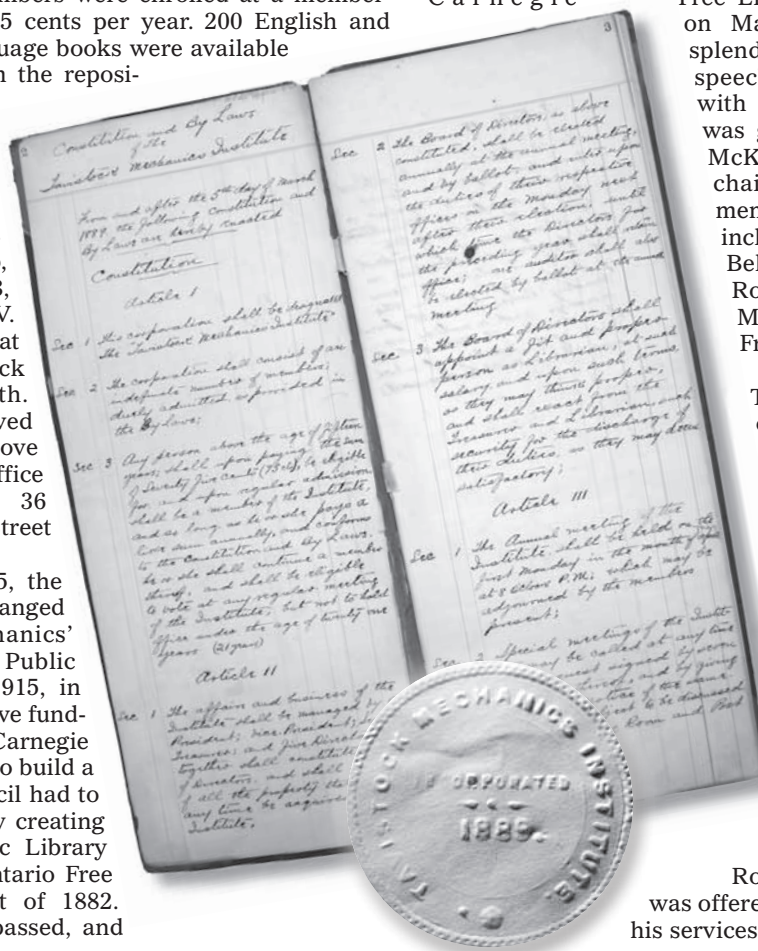 mbers were enrolled at a member-
5 cents per year. 200 English and
uage books were available
n the reposi-
V.
at
ck
th.
ved
ove
ffice
36
treet
5, the
anged
hanics'
Public
915, in
ve fund-
Carnegie
o build a
cil had to
y creating
c Library
ntario Free
t of 1882.
passed, and
2
Constitution and By Laws
of The
Tavistock Mechanics Institute
From and after the 5th day of March
1889, the following Constitution and
By Laws are hereby enacted
Constitution
Article I
Sec 1 This corporation shall be designated
The Tavistock Mechanics Institute
Sec 2 The corporation shall consist of an
indefinite number of members;
duly admitted, as provided in
the By Laws;
Sec 3 Any person above the age of fifteen
years; shall upon paying the sum
of Seventy five Cents (75cts), be eligible
for, and upon regular admission
shall be a member of the Institute,
and as long as he or she pays a
like sum annually, and conforms
to the Constitution and By Laws.
he or she shall continue a member
thereof, and shall be eligible
to vote at any regular meeting
of the Institute, but not to hold
office under the age of twenty one
years (21 years)
Article II
Sec 1 The affairs and business of the
Institute shall be managed by
President; Vice President;
Treasurer; and Five Direct
together shall constitute
of Directors, and shall
of all the property tha
any time be acquire
Institute.
3
Sec 2 The Board of Directors, as above
constituted, shall be elected
annually at the annual meeting,
and by ballot, and enter upon
the duties of their respective
offices on the Monday next
after their election; until
which time the Directors for
the preceding year, shall retain
office; one auditor shall also
be elected by ballot at the annual
meeting.
Sec 3 The Board of Directors shall
appoint a fit and proper
person as Librarian, at such
salary and upon such terms
as they may think proper,
and shall exact from the
Treasurer and Librarian, such
security for the discharge of
their duties, as they may deem
satisfactory;
Article III
Sec 1 The Annual meeting of the
Institute, shall be held on the
first Monday in the month of
at 8 Oclock P.M; which may be
adjourned by the members
present;
Sec 2 Special meetings of the Instit-
may be called at any time
signed by seven
and by giving
of the same
ject to be discussed
Room and Post
TAVISTOCK MECHANICS INSTITUTE.
INCORPORATED
1889.
Carnegie
Free Li
on Ma
splend
speec
with
was g
McK
chai
men
incl
Bel
Ro
M
Fr
T
Ro
was offere
his services